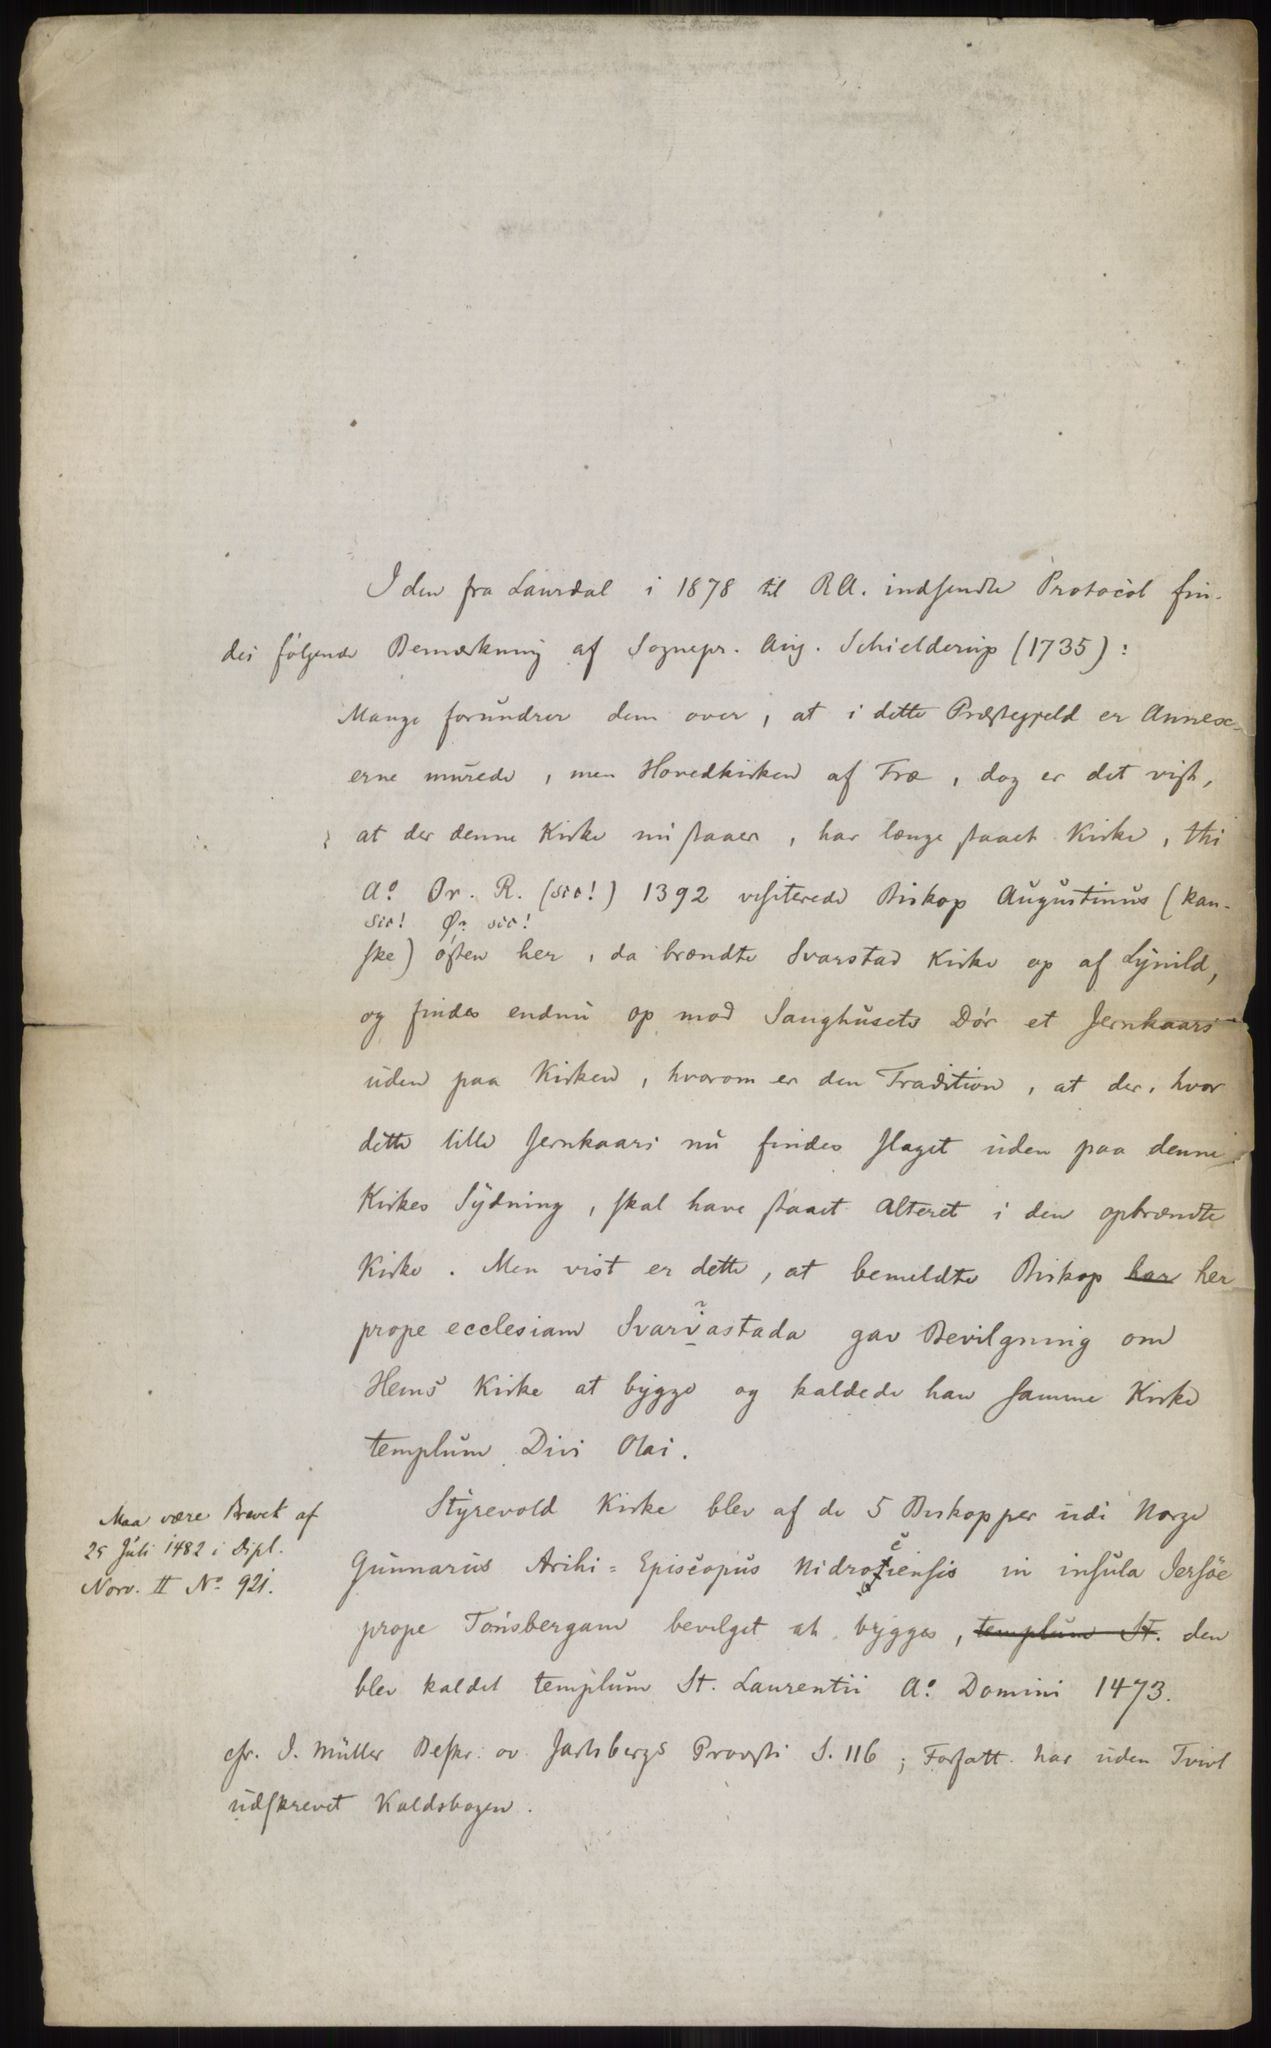 I den fra Laurdal i 1878 til RA. indsendte Protocol fin-
des følgende Bemærkning af Sognepr. Aug. Schielderup (1735):
Mange forundrer dem over, at i dette Præstegjeld er Annex-
erne murede, men Hovedkirken af Træ, dog er det vist,
at der denne Kirke nu staaer, har længe staaet Kirke, thi
A.º Or. R. (sic!) 1392 visiterede Biskop Augustinus (kan-
sic! Ø? sic!
ske) østen her, da brændte Svarstad Kirke op af Lynild,
og findes endnu op mod Sanghusets Dør et Jernkaars
uden paa Kirken, hvorom er den Tradition, at der, hvor
dette lille Jernkaars nu findes slaget uden paa denne
Kirkes Sydning, skal have staaet Alteret i den opbrændte
Kirke. Men vist er dette, at bemeldte Biskop har her
prope ecclesiam Svarvastada gav Bevilgning om
Hems Kirke at bygge og kaldede han samme Kirke
templum Divi Olai.
Styrevold Kirke blev af de 5 Biskopper udi Norge
Maa være Brevet af
25 Juli 1482 i Dipl.
Norv. II Nº 921.
Gunnarus Arihi=Episcopus Nidrosiensis in insula Jersöe
prope Tønsbergam bevilget at bygges, templum St. den
blev kaldet templum St. Laurentii Aº. Domini 1473.
cfr. I. Müller Beskr. ov. Jarlsbergs Provsti S. 116; Forfatt. har uden Tvivl
udskrevet Kaldsbogen.